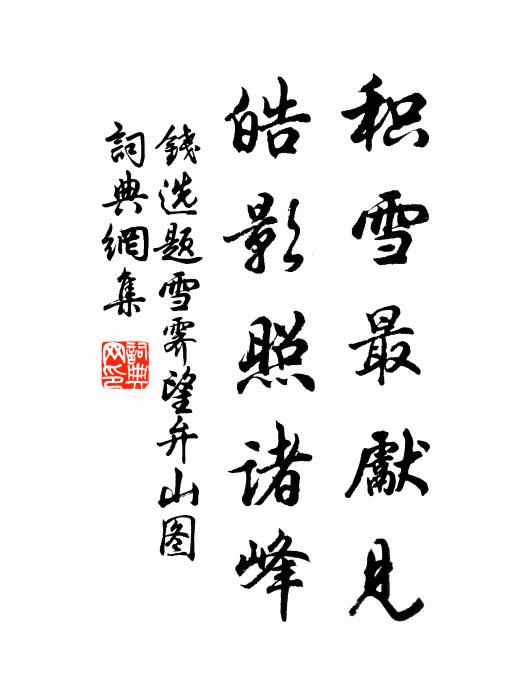 积雪最獻見
皓影照诸峰
錢选题雪霁望弁山图
詞典網集
詞典网印